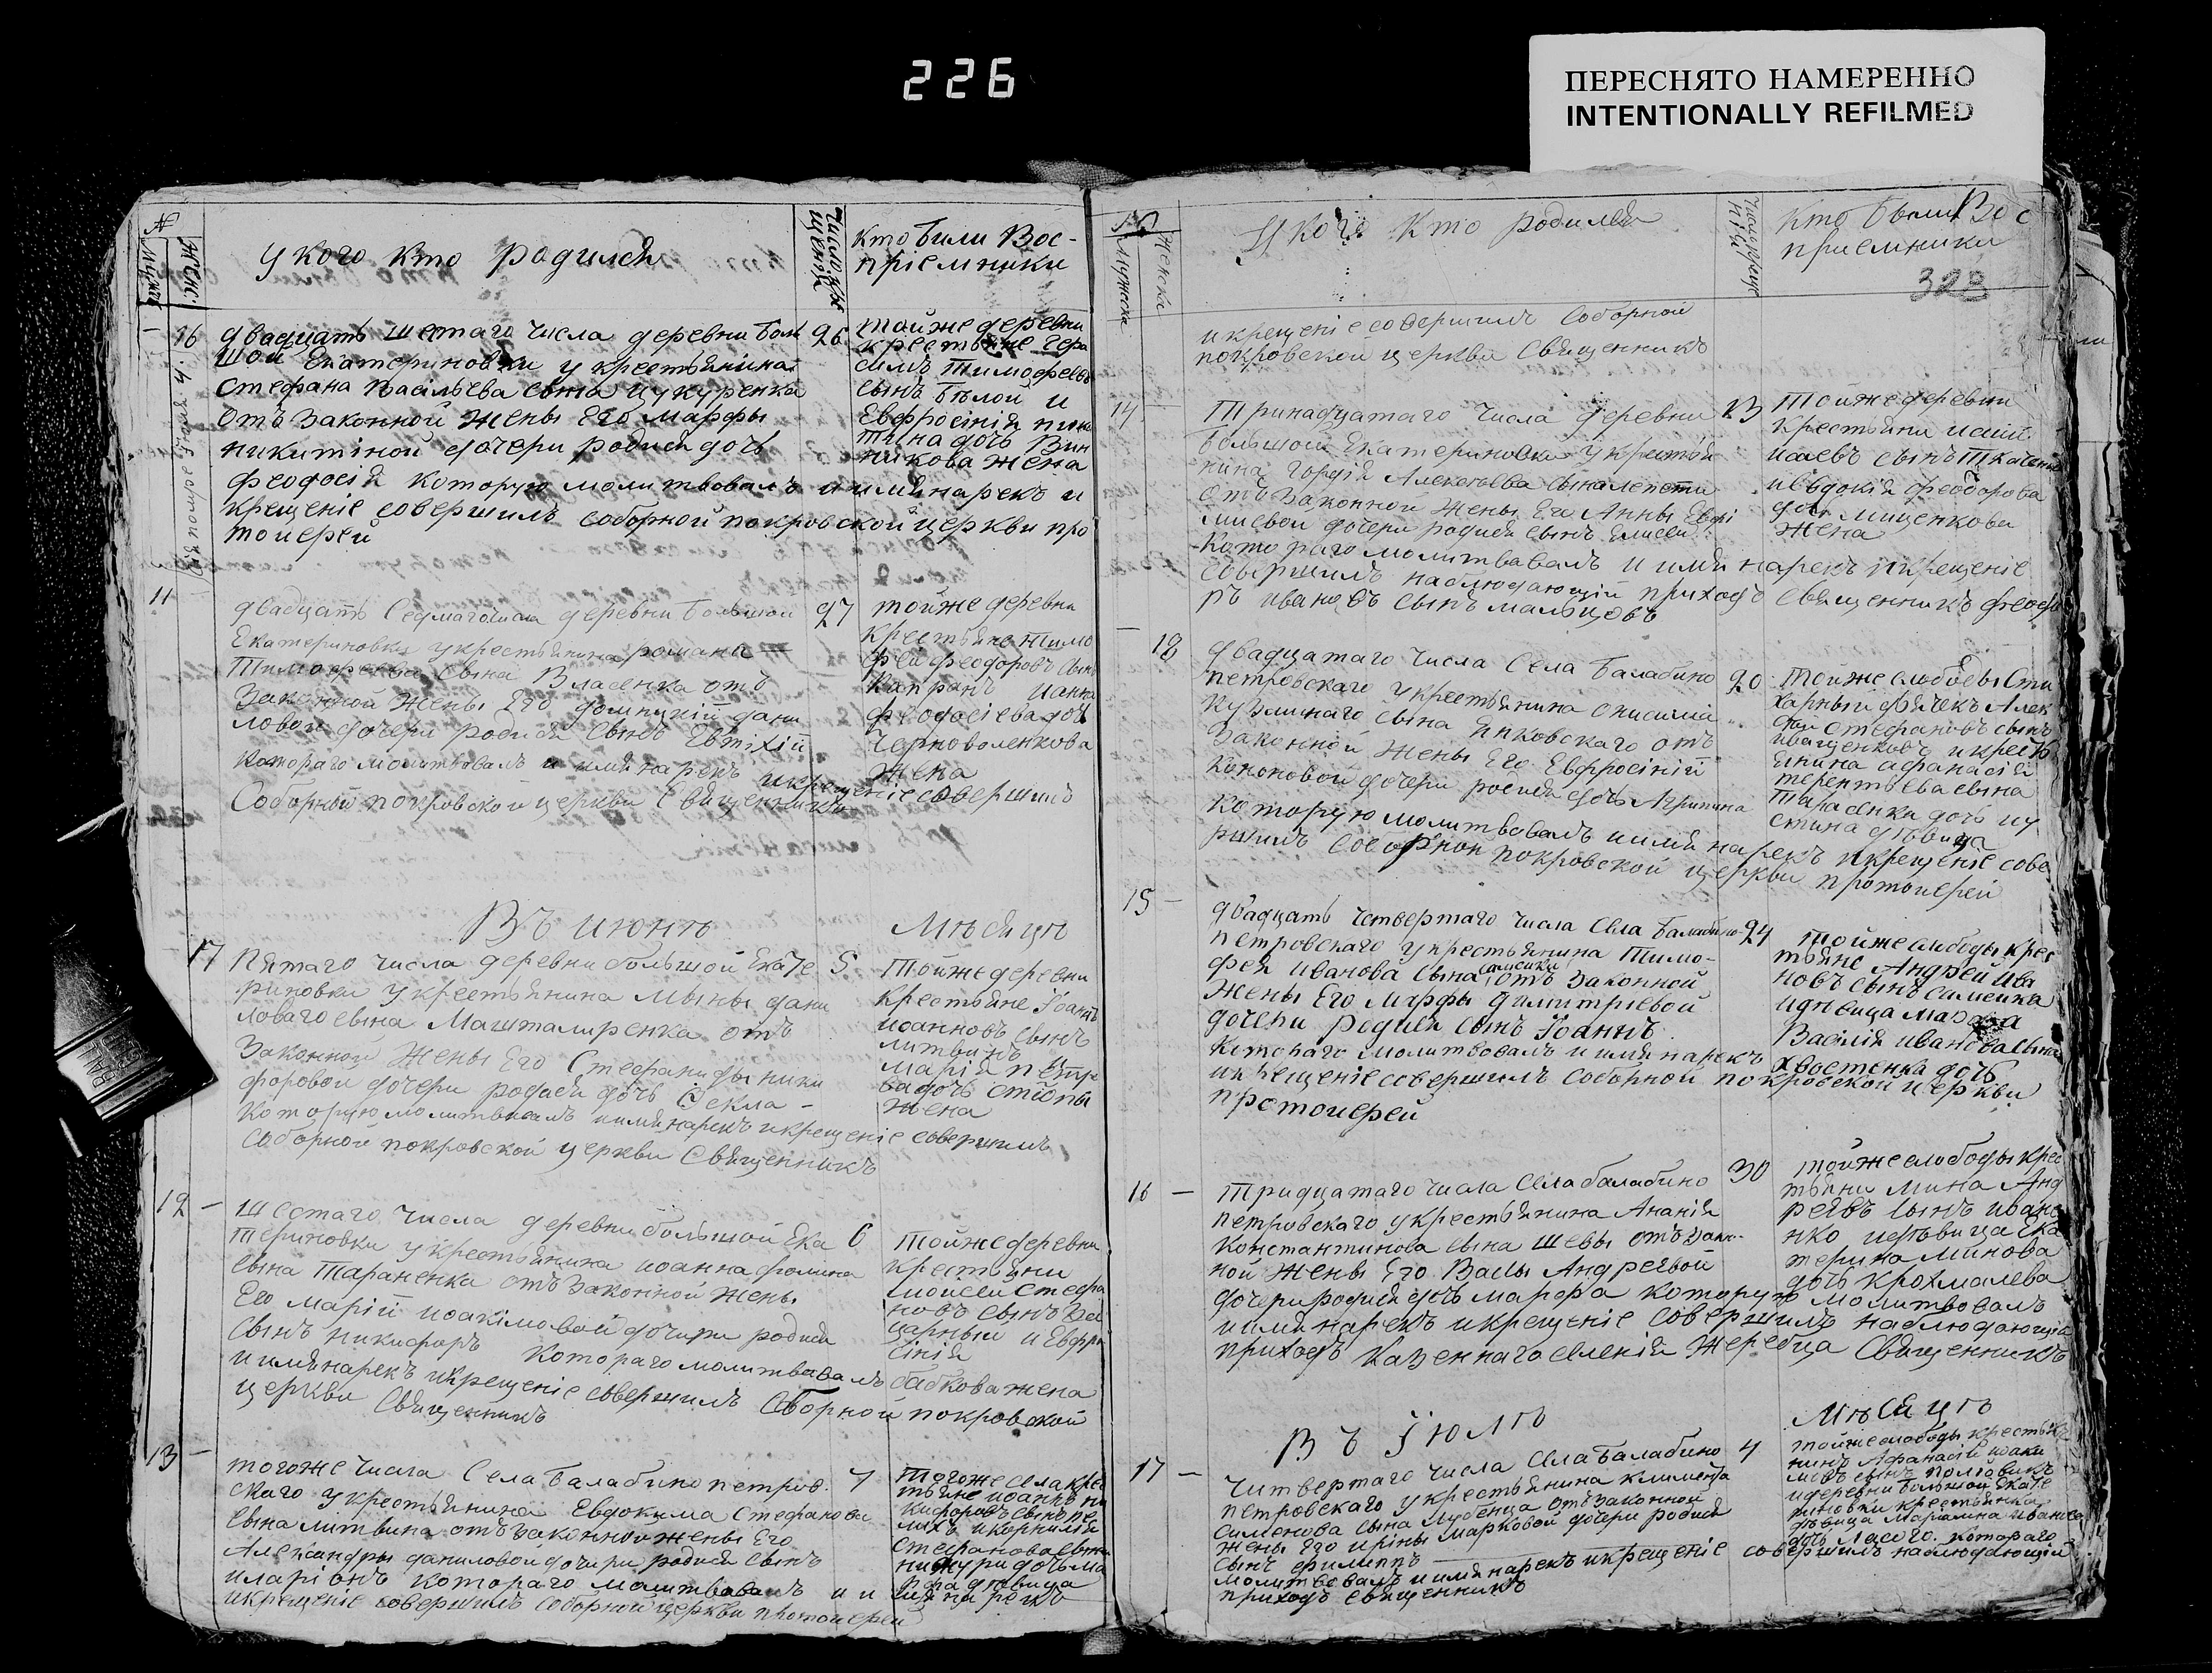 226
ПЕРЕСНЯТО НАМЕРЕННО
INTENTIONALLY REFILMED
№
Женс:
у кого кто родился
кто били Вос-
пріемники
16 двадцать шестаго числа деревни Боль 26
шой Екатериновки у крестьянина
Стефана Васільева сына Цукуренка
отъ законной жены Его Марфы
никитіной дочери родися дочь
феодосія которую молитвовалъ и имя нарекъ и
крещеніе совершилъ соборной покровской церкви про
тоиерей
тойже деревни
крестьяне Гера
симъ Тимофеевъ
сынъ Бѣлой и
Евфросінія ники
тина дочь Вин
никова жена
11 двадцать Седмаго числа деревни Большой 27
Екатериновки у крестьянина романа
Тимофеева сына Власенка отъ
Законной жены Его домникіи дани
ловой дочери родися сынъ Евтихій
Котораго молитвовалъ и имя нарекъ и крещеніе совершилъ
Соборной покровской церкви Священникъ
тойже деревни
крестьяне тимо
фей феодоровъ сынъ
Капранъ
феодосіева доч
Черноволенкова
Жена
Въ июнѣ Мѣсяцѣ
17 Пятаго числа деревни большой Екате 5
риновки у крестьянина Мыны дани
ловаго сына Машталиренка отъ
Законной жены Его Стефаниды ники
форовой дочери родися дочь Фекла -
Которую молитвовалъ и имя нарекъ и крещеніе совершилъ
соборной покровской церкви Священникъ
Тойже деревни
Крестьяне Іоаннъ
иоанновъ сынъ
литвинъ
Марія петро
ва дочь
жена
12 - Шестаго числа деревни большой Ека 6
териновки у крестьянина иоанна фомина
сына Тараненка отъ Законной жены
Его Маріи иоакімовой дочери родися
Сынъ никифоръ Котораго молитвовалъ
и имя нарекъ и крещеніе совершилъ Соборной покровской
церкви Священникъ
Тойже деревни
крестьяни
Моисей Стефа
новъ сынъ
царный и Евфро
сінія
бабкова жена
13 - тогоже числа Села Балабино петров. 7
скаго у крестьянина Евдокима Стефанова
сына литвина отъ законной жены Его
Александры даниловой дочери родися сынъ
иларіонъ котораго молитвовалъ и имя нарекъ
и крещеніе совершилъ соборной церкви протоиерей
Тогоже села крес
тьяне иоаннъ ни
кифоровъ сынъ
Стефанова сына
дочь Ма
рфа дѣвица
женска
У кого кто родился
Кто были Вос
приемники
323
и крещеніе совершилъ Соборной
покровской церкви Священникъ
14 - Тринадцатаго числа деревни 13
Большой Екатериновки у крестья
нина Гордія Алексѣева сына лепети
отъ законной жены Его Анны Евфи
миевой дочери родися сынъ Елисей
Котораго молитвовалъ и имя нарекъ и крещеніе
совершилъ наблюдающій приходъ Священникъ феодо
ръ ивановъ сынъ мальцовъ
Тойже деревни
Крестьяни
исаевъ сынъ Ткаченко
и Евдокія феодорова
дочь мищенкова
Жена
18 двадцатаго числа Села Балабино 20
петровскаго у крестьянина онисима
Кузминаго сына Янковскаго отъ
Законной жены Его Евфросініи
Кононовой дочери родися дочь Агрипина
Которую молитвовалъ и имя нарекъ и крещеніе сове
ршилъ соборной покровской церкви протоиерей
Тойже слободы Сти
харный дьячекъ Алек
Стефановъ сынъ
иващенковъ и кресть
янина афанасія
терентьева сына
Тарасенка дочь иу
стина дѣвица
15 - двадцать четвертаго числа Села Балабино 24
петровскаго у крестьянина Тимо-
фея иванова сына самсика отъ законной
Жены Его Марфы димитріевой
дочери родися сынъ Іоаннъ
Котораго молитвовалъ и имя нарекъ
и крещеніе совершилъ соборной покровской церкви
протоиерей
Тойже слободы крес
тьяне Андрей ива
новъ сынъ самсика
и дѣвица Марфа
Василія иванова сына
хвостенка дочь
16 - Тридцатаго числа Села балабино 30
петровскаго у крестьянина Ананія
Константинова сына шевы отъ закон-
ной жены Его Вассы Андреевой
дочери родися дочь марфа которую молитвовалъ
и имя нарекъ и крещеніе совершилъ наблюдающій
приходъ Казеннаго селенія Жеребца Священникъ
тойже слободы крес
тьяни мина Анд
реевъ сынъ иване
нко и дѣвица Ека
терина минова
дочь крохмалева
Въ Іюлѣ Мѣсяцѣ
17 - Читвертаго числа Села Балабино 4
петровскаго у крестьянина климента
Сименова сына Лубенца отъ законной
жены Его ирины марковой дочери родися
сынъ филиппъ
молитвовалъ и имя нарекъ и крещеніе совершилъ наблюдающій
приходъ священникъ
тойже слободы крестья
нинъ Афанасій иоаки
мовъ сынъ полтавикъ
и деревни большой Екате
риновки крестьянка
дѣвица Маріамна иванова
дочь котораго